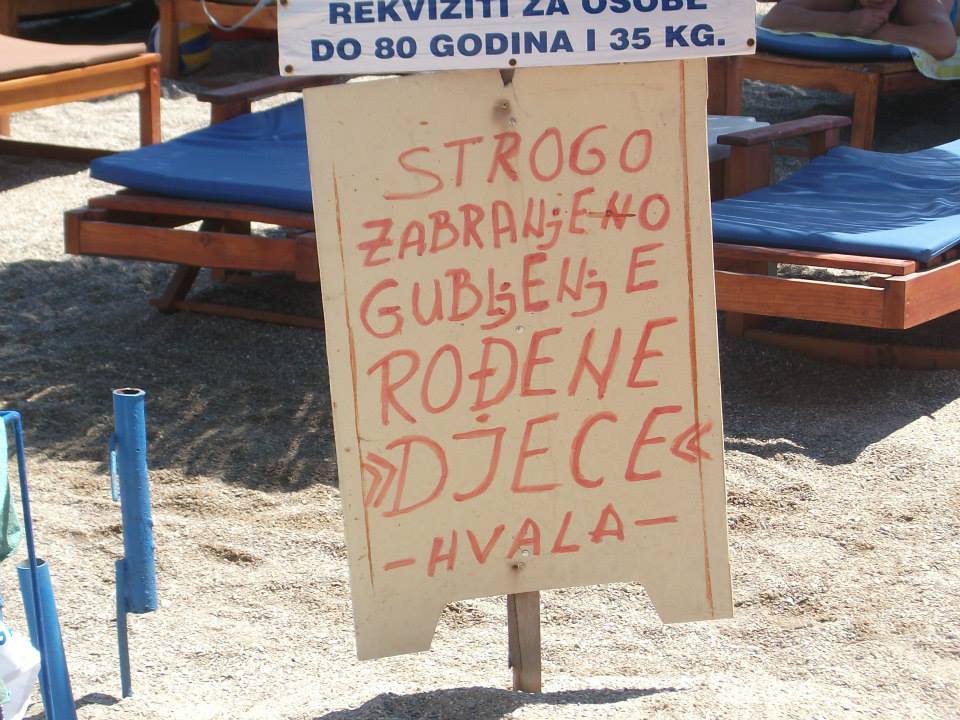 REKVIZITI ZA OSOBE
DO 80 GODINA I 35 KG.
STROGO
ZABRANjENO
GUBLjENjE
ROĐENE
»DJECE«
-HVALA-